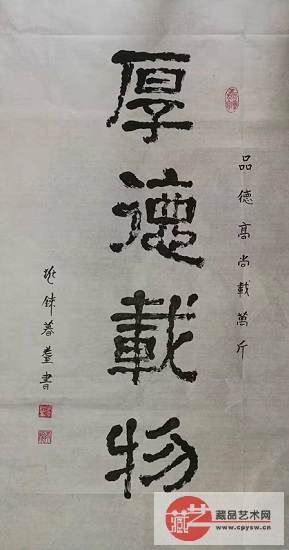 厚德載物
品德高尚載萬斤
書
藏品艺术网
www.cpysw.cn